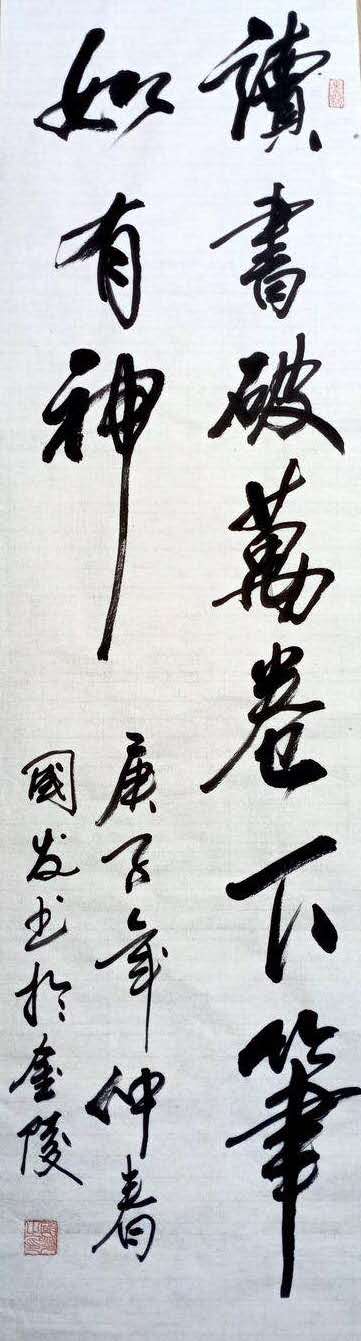 讀書破萬卷下筆
如有神
庚子年仲春
國发书於金陵